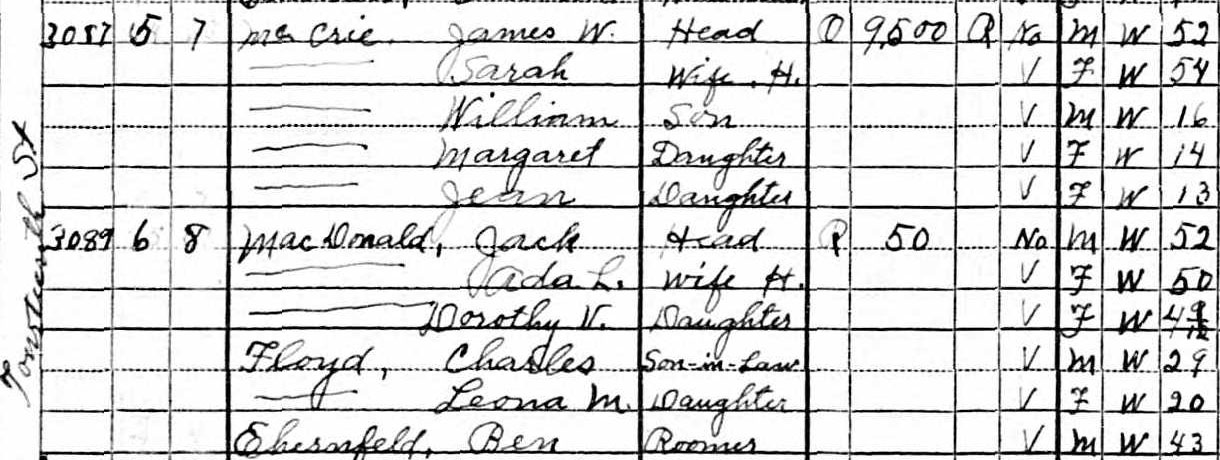 3087 5 7 McCrie, James W. Head O 9,500 R No M W 52
—— Sarah Wife. H. V F W 54
—— William Son V M W 16
—— Margaret Daughter V F W 14
—— Jean Daughter V F W 13
3089 6 8 MacDonald, Jack Head R 50 No M W 52
—— Ada L. Wife H. V F W 50
—— Dorothy V. Daughter V F W 4 9/12
Floyd, Charles Son-in-Law V M W 29
—— Leona M. Daughter V F W 20
Ehernfeld, Ben Roomer V M W 43
St